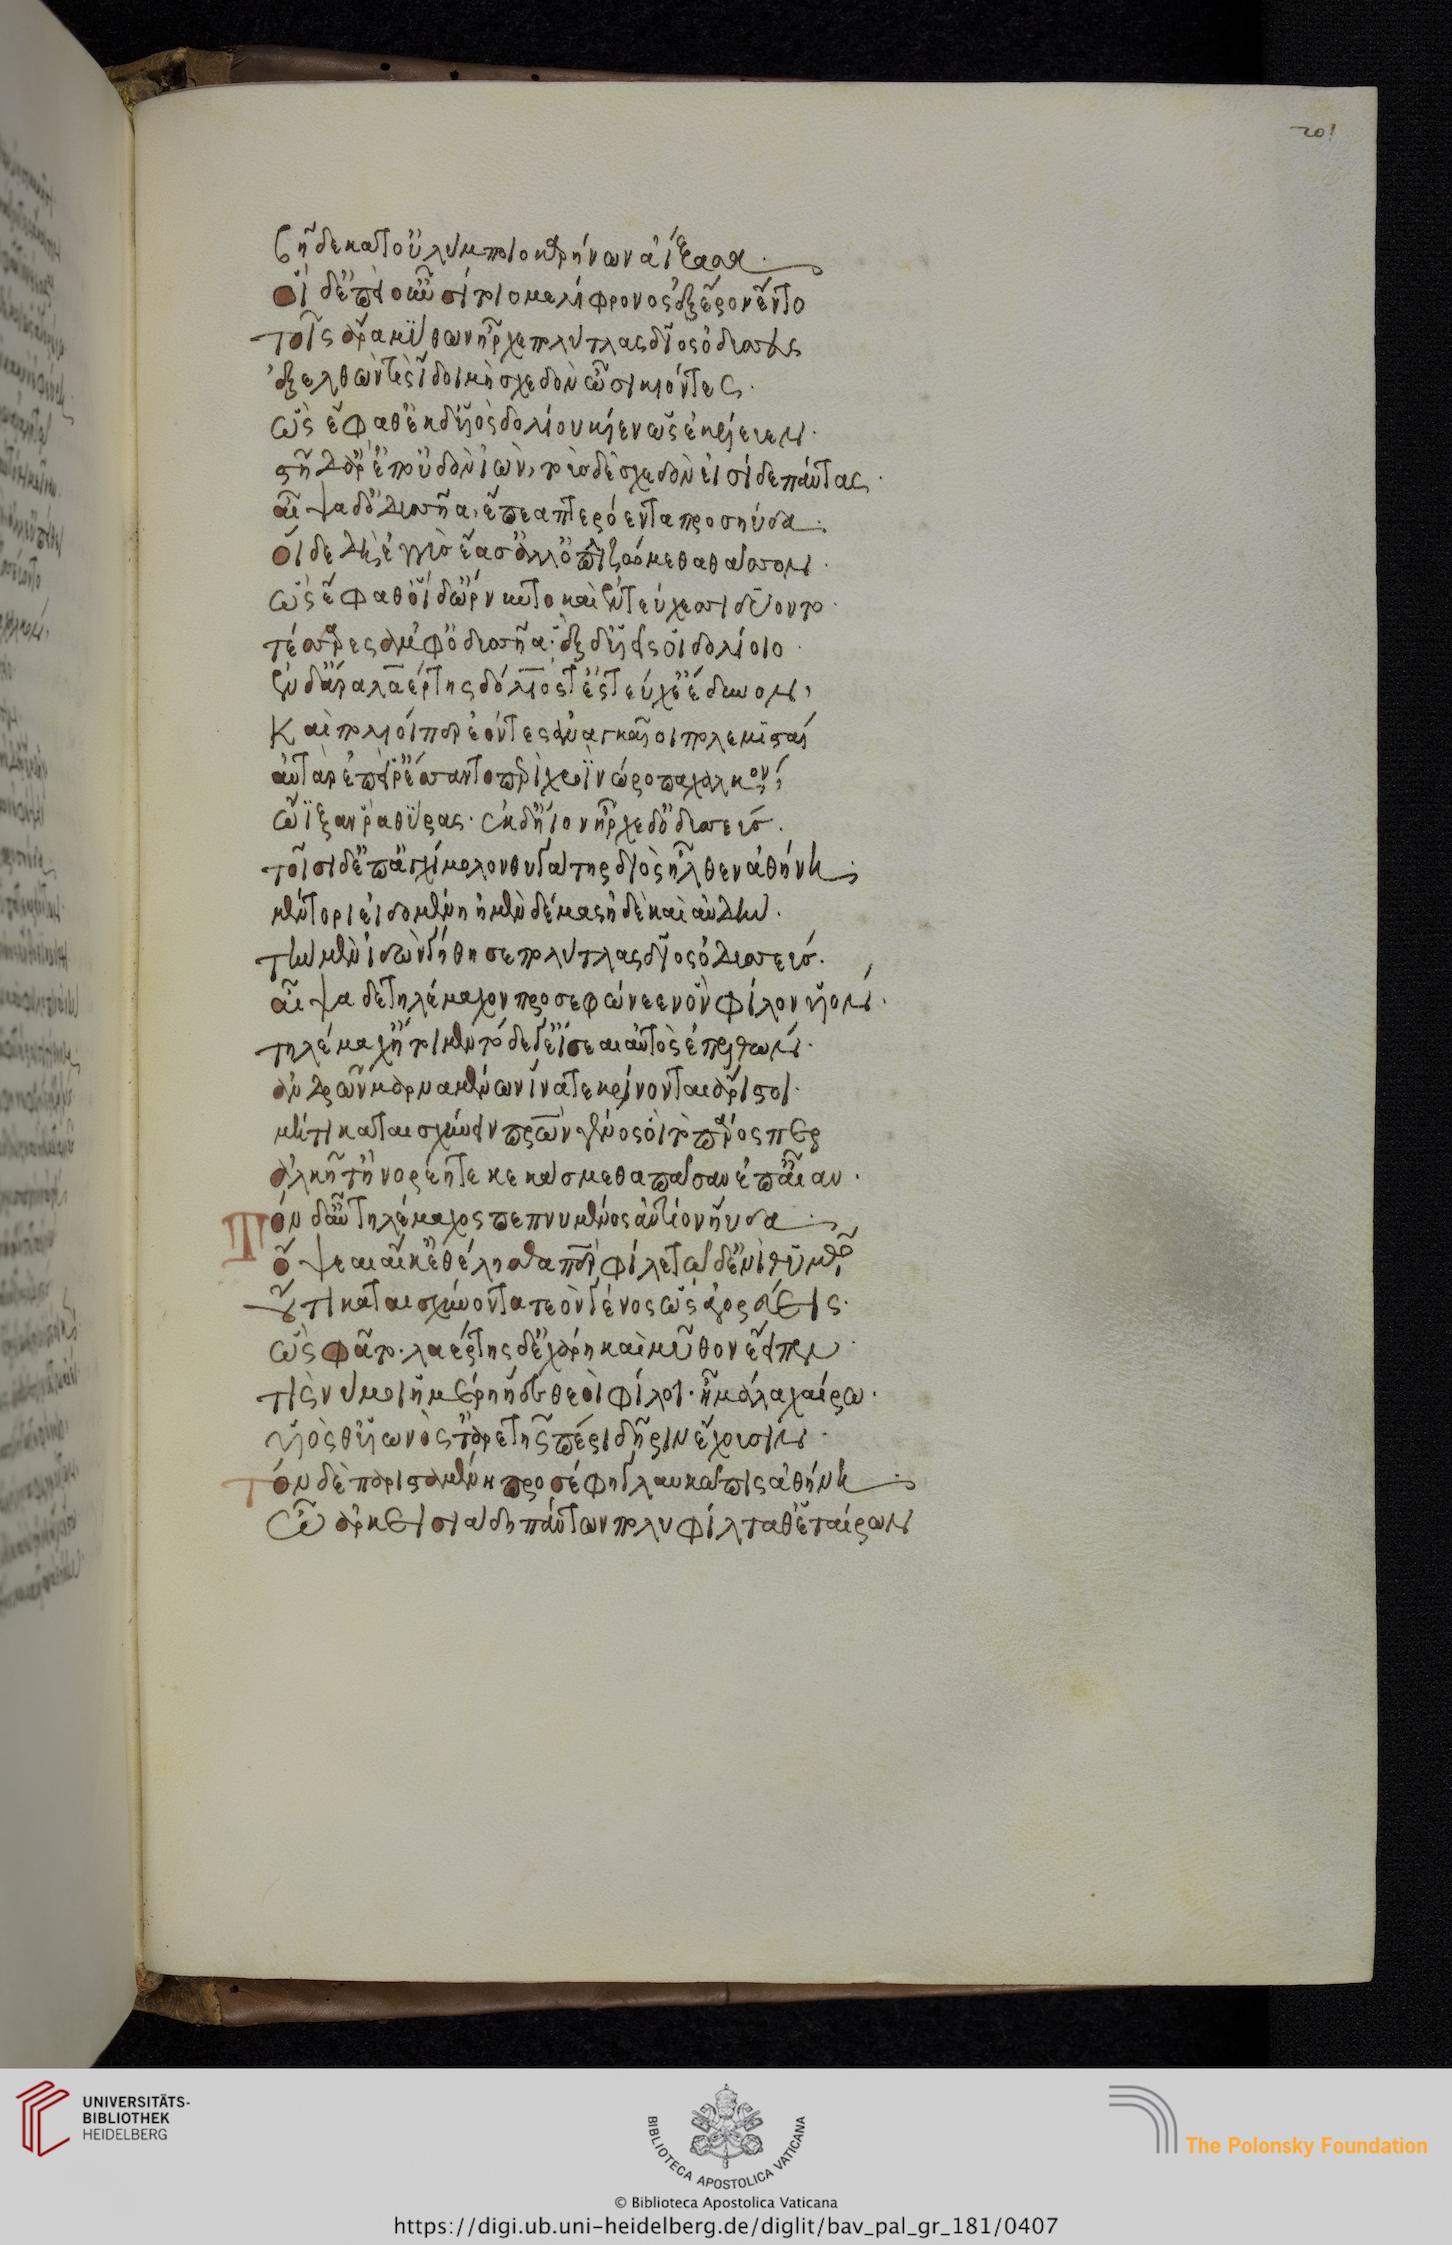 201
βῆ δὲ κατ' οὐλύμποιο καρήνων ἀΐξασα.
οἱ δ' ἐπεὶ οὖν σίτοιο μελίφρονος ἐξ ἔρον ἕντο
τοῖς δ' ἄρα μύθων ἦρχε πολύτλας δῖος ὀδυσσεύς
ἐξελθών τις ἴδοι μὴ σχεδὸν ὦσι κιόντες.
ὣς ἔφαθ' ἐκ δ' υἱὸς δολίου κίεν ὡς ἐκέλευεν.
στῆ δ' ἄρ' ἐπ' οὐδὸν ἰών, τοὺς δὲ σχεδὸν εἴσιδε πάντας.
αἶψα δ' ὀδυσσῆα, ἔπεα πτερόεντα προσηύδα.
οἵδε δὴ ἐγγὺς ἔασ' ἀλλ' ὁπλιζώμεθα θᾶσσον.
ὣς ἔφαθ' οἱ δ' ὤρνυντο καὶ ἐν τεύχεσι δύοντο.
τέσσαρες ἀμφ' ὀδυσσῆα· ἓξ δ' υἱεῖς οἱ δολίοιο.
ἐν δ' ἄρα λαέρτης δόλιός τ' ἐς τεύχε' ἔδυνον,
καὶ πολιοί περ ἐόντες ἀναγκαῖοι πολεμισταί
αὐτὰρ ἐπεί ῥ' ἕσσαντο περὶ χροῒ νώροπα χαλκόν,
ὤϊξάν ῥα θύρας. ἐκ δ' ἤϊον ἦρχε δ' ὀδυσσεύς.
τοῖσι δ' ἐπ' ἀγχίμολον θυγάτηρ διὸς ἦλθεν ἀθήνη.
μέντορι εἰδομένη ἠμὲν δέμας ἠδὲ καὶ αὐδήν.
τὴν μὲν ἰδὼν γήθησε πολύτλας δῖος ὀδυσσεύς.
αἶψα δὲ τηλέμαχον προσεφώνεεν ὃν φίλον υἱόν.
τηλέμαχ' ἤδη μὲν τόδε γ' εἴσεαι αὐτὸς ἐπελθών.
ἀνδρῶν μαρναμένων ἵνα τε κρίνονται ἄριστοι.
μήτι καταισχύνειν πατέρων γένος οἳ τὸ πάρος περ
ἀλκῇ τ' ἠνορέῃ τε κεκάσμεθα πᾶσαν ἐπ' αἶαν.
Τὸν δ' αὖ τηλέμαχος πεπνυμένος ἀντίον ηὔδα.
ὄψεαι αἴ κ' ἐθέλησθα πάτερ φίλε τῷδ' ἐνὶ θυμῷ
οὔτι καταισχύνοντα τεὸν γένος ὡς ἀγορεύεις.
ὣς φάτο. λαέρτης δ' ἐχάρη καὶ μῦθον ἔειπεν.
τίς νύ μοι ἡμέρη ἥδε θεοὶ φίλοι. ἦ μάλα χαίρω.
υἱός θ' υἱωνός τ' ἀρετῆς πέρι δῆριν ἔχουσιν.
τὸν δὲ παρισταμένη προσέφη γλαυκῶπις ἀθήνη.
ὦ ἀρκεισιάδη πάντων πολὺ φίλταθ' ἑταίρων
UNIVERSITÄTS-
BIBLIOTHEK
HEIDELBERG
BIBLIOTECA APOSTOLICA VATICANA
The Polonsky Foundation
© Biblioteca Apostolica Vaticana
https://digi.ub.uni-heidelberg.de/diglit/bav_pal_gr_181/0407